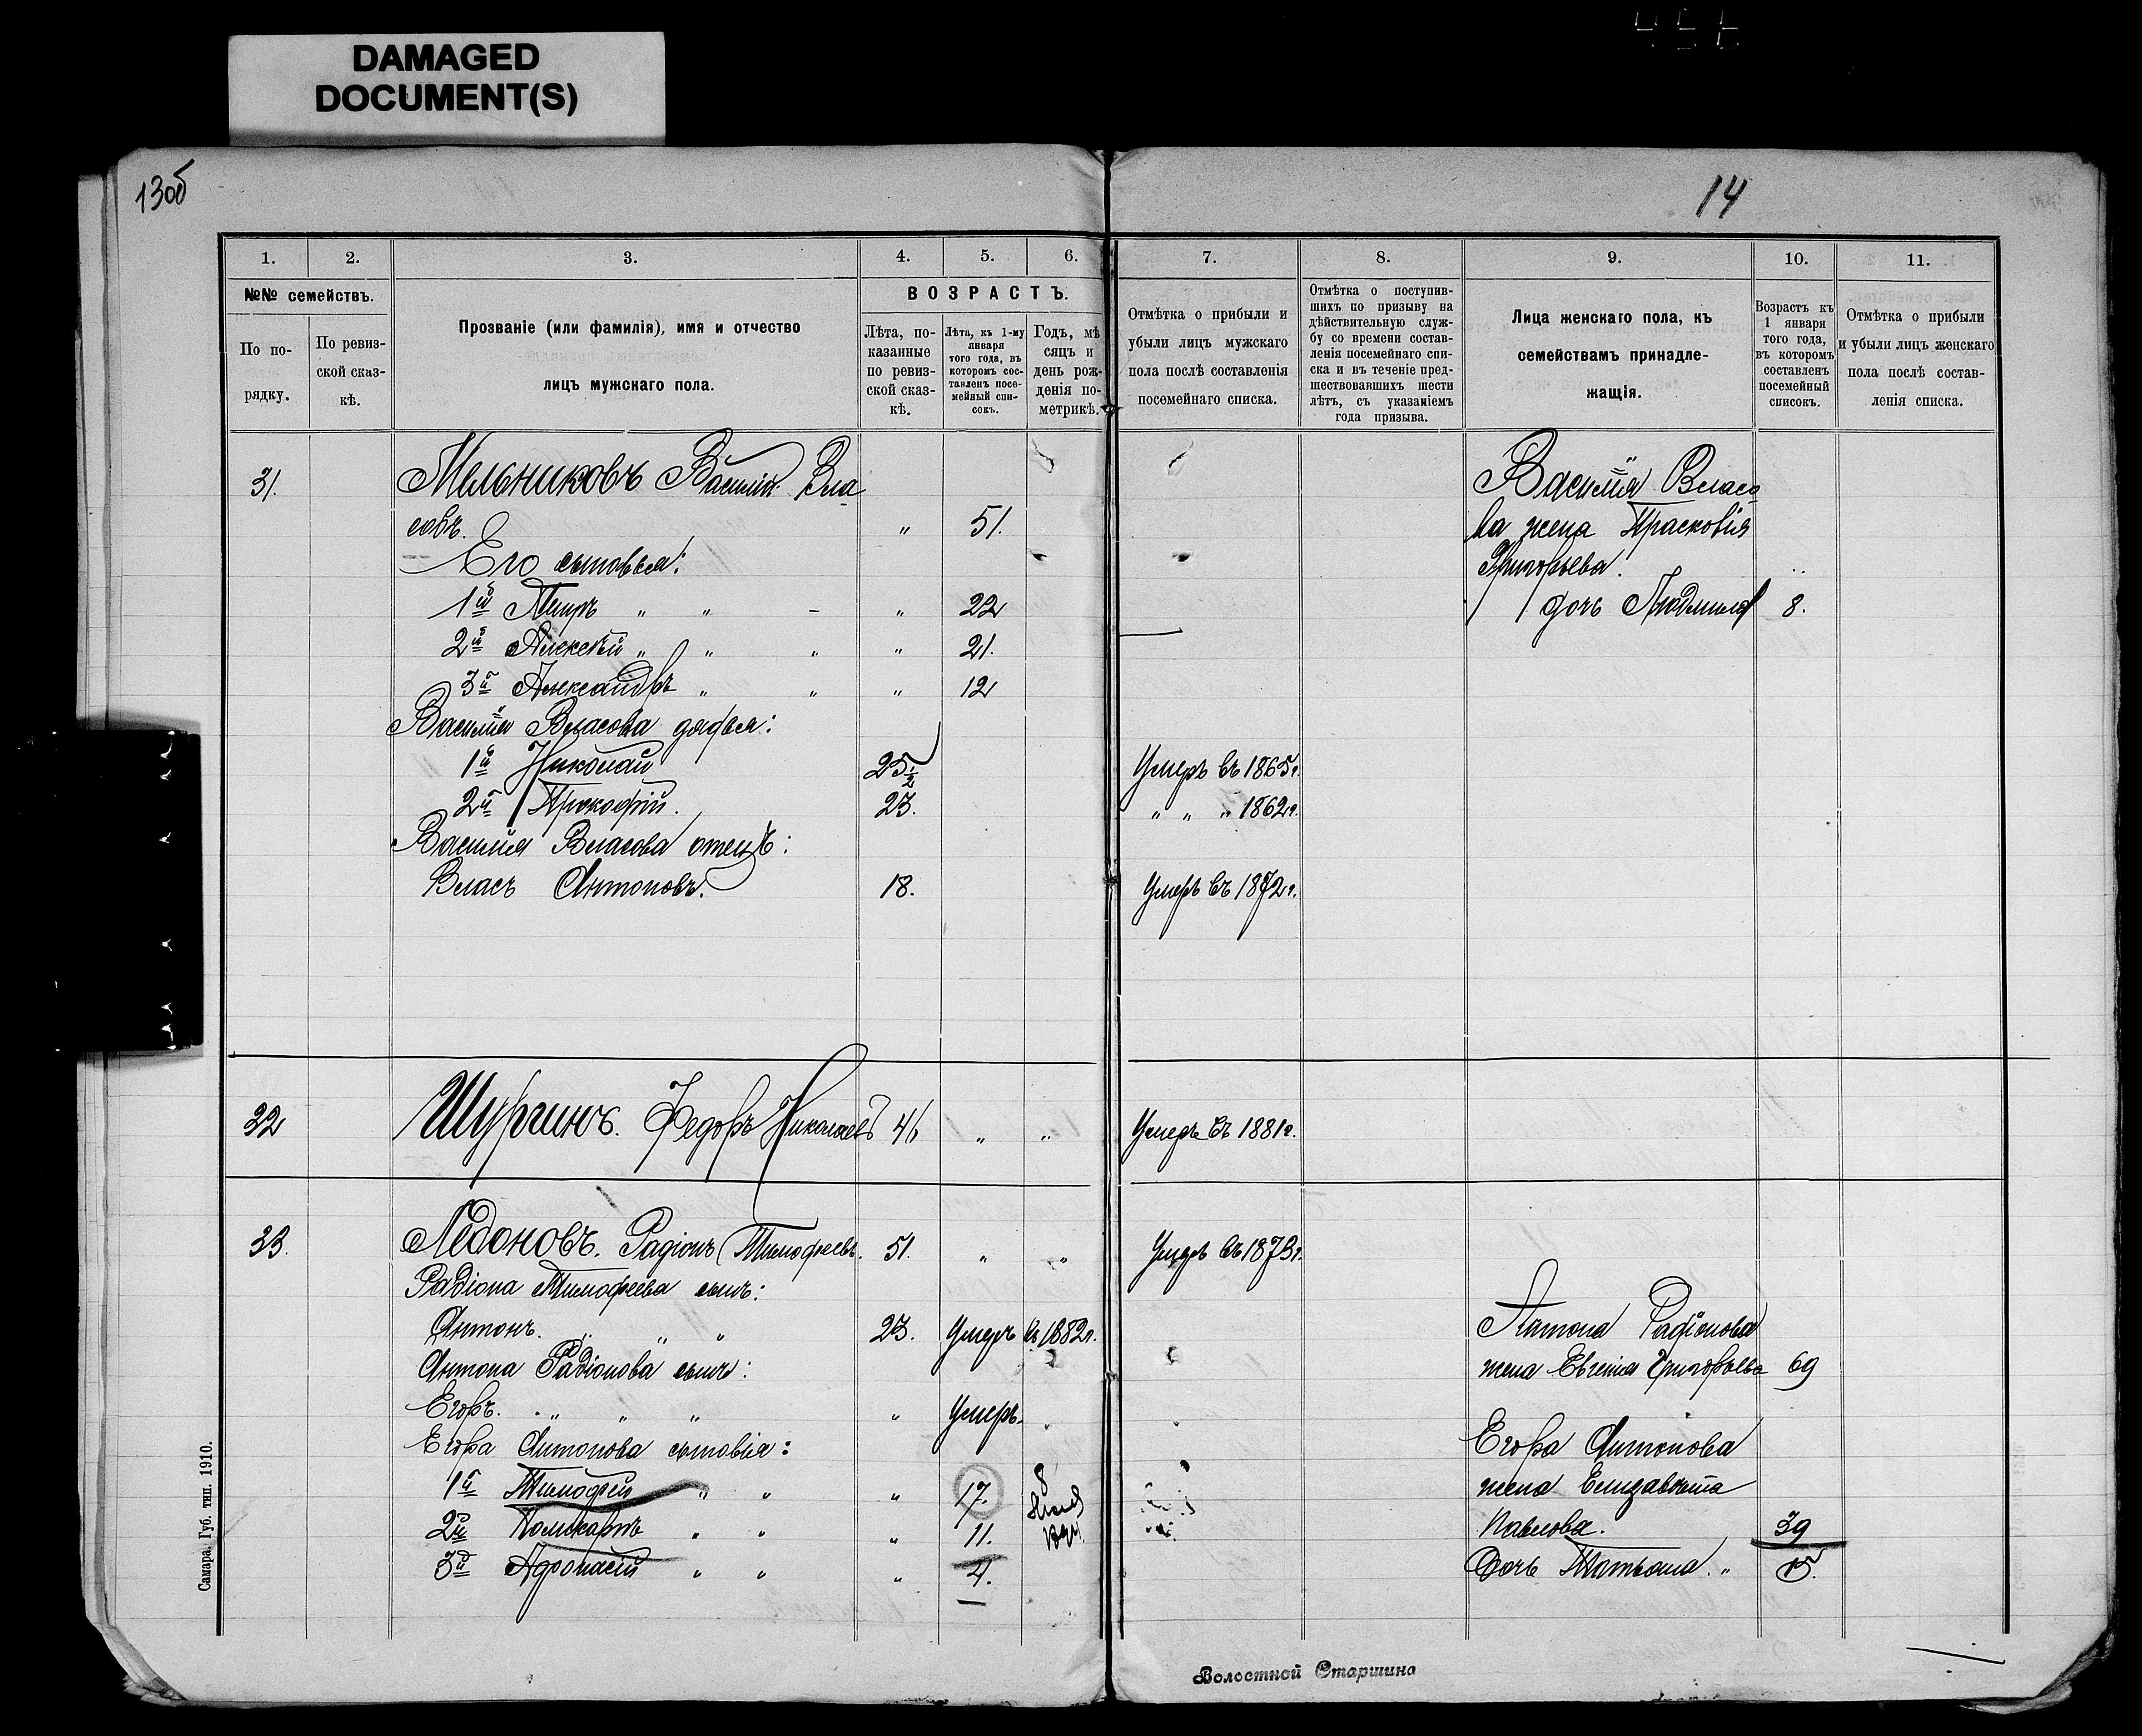 DAMAGED
DOCUMENT(S)
13об
14
1. 2. 3. 4. 5. 6. 7. 8. 9. 10. 11.
№№ семействъ.
По по-
рядку.
По ревиз-
ской сказ-
кѣ.
Прозваніе (или фамилія), имя и отчество
лицъ мужскаго пола.
ВОЗРАСТЪ.
Лѣта, по-
казанные
по ревиз-
ской сказ-
кѣ.
Лѣта, къ 1-му
января
того года, въ
которомъ сос-
тавленъ посе-
мейный спи-
сокъ.
Годъ, мѣ
сяцъ и
день рож-
денія по-
метрикѣ.
Отмѣтка о прибыли и
убыли лицъ мужскаго
пола послѣ составленія
посемейнаго списка.
Отмѣтка о поступив-
шихъ по призыву на
дѣйствительную служ-
бу со времени состав-
ленія посемейнаго спи-
ска и въ теченіе пред-
шествовавшихъ шести
лѣтъ, съ указаніемъ
года призыва.
Лица женскаго пола, къ
семействамъ принадле-
жащія.
Возрастъ къ
1 января
того года,
въ которомъ
составленъ
посемейный
списокъ.
Отмѣтка о прибыли
и убыли лицъ женскаго
пола послѣ состав-
ленія списка.
31. Мельниковъ Василій Вла
совъ. " 51.
Его сыновья:
1й Петръ " " - " 22
2й Алексѣй " " " " 21.
3й Александръ " " " 12
Василія Власова дядья:
1й Николай 25½ Умеръ въ 1865г.
2й Прокофій. 23. " " " 1862г.
Василія Власова отецъ:
Власъ Антоновъ. 18. Умеръ въ 1872г.
Василія Власо
ва жена Прасковія
Григорьева. "
дочь Людмила 8.
32 Шургинъ. Федоръ Николаевъ 46 " " Умеръ въ 1881г.
33. Ледоновъ. Радіонъ Тимофеевъ. 51. " " Умеръ въ 1873г.
Радіона Тимофеева сынъ:
Антонъ. " " " 23. Умеръ въ 1882г.
Антона Радіонова сынъ:
Егоръ. " " " " Умеръ. "
Егора Антонова сыновія:
1й Тимофей " " " 17. 8
2й Поликарпъ " " " 11.
3й Афонасій " " " 4.
Антона Радіонова
жена Евгенія Григорьева 69
Егора Антонова
жена Елизавѣта
Павлова. 39
Дочь Татьяна. " 15.
Самара. Губ. тип. 1910.
Волостной Старшина